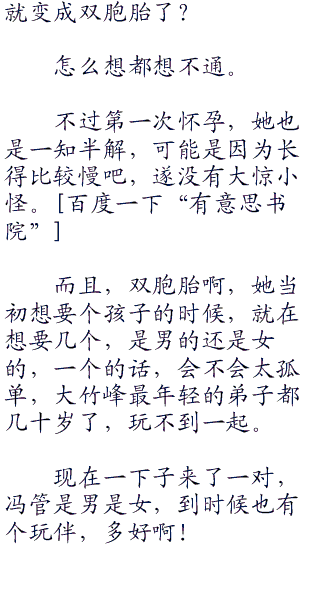 就变成双胞胎了？
怎么想都想不通。
不过第一次怀孕，她也
是一知半解，可能是因为长
得比较慢吧，遂没有大惊小
怪。[百度一下“有意思书
院”]
而且，双胞胎啊，她当
初想要个孩子的时候，就在
想要几个，是男的还是女
的，一个的话，会不会太孤
单，大竹峰最年轻的弟子都
几十岁了，玩不到一起。
现在一下子来了一对，
冯管是男是女，到时候也有
个玩伴，多好啊！